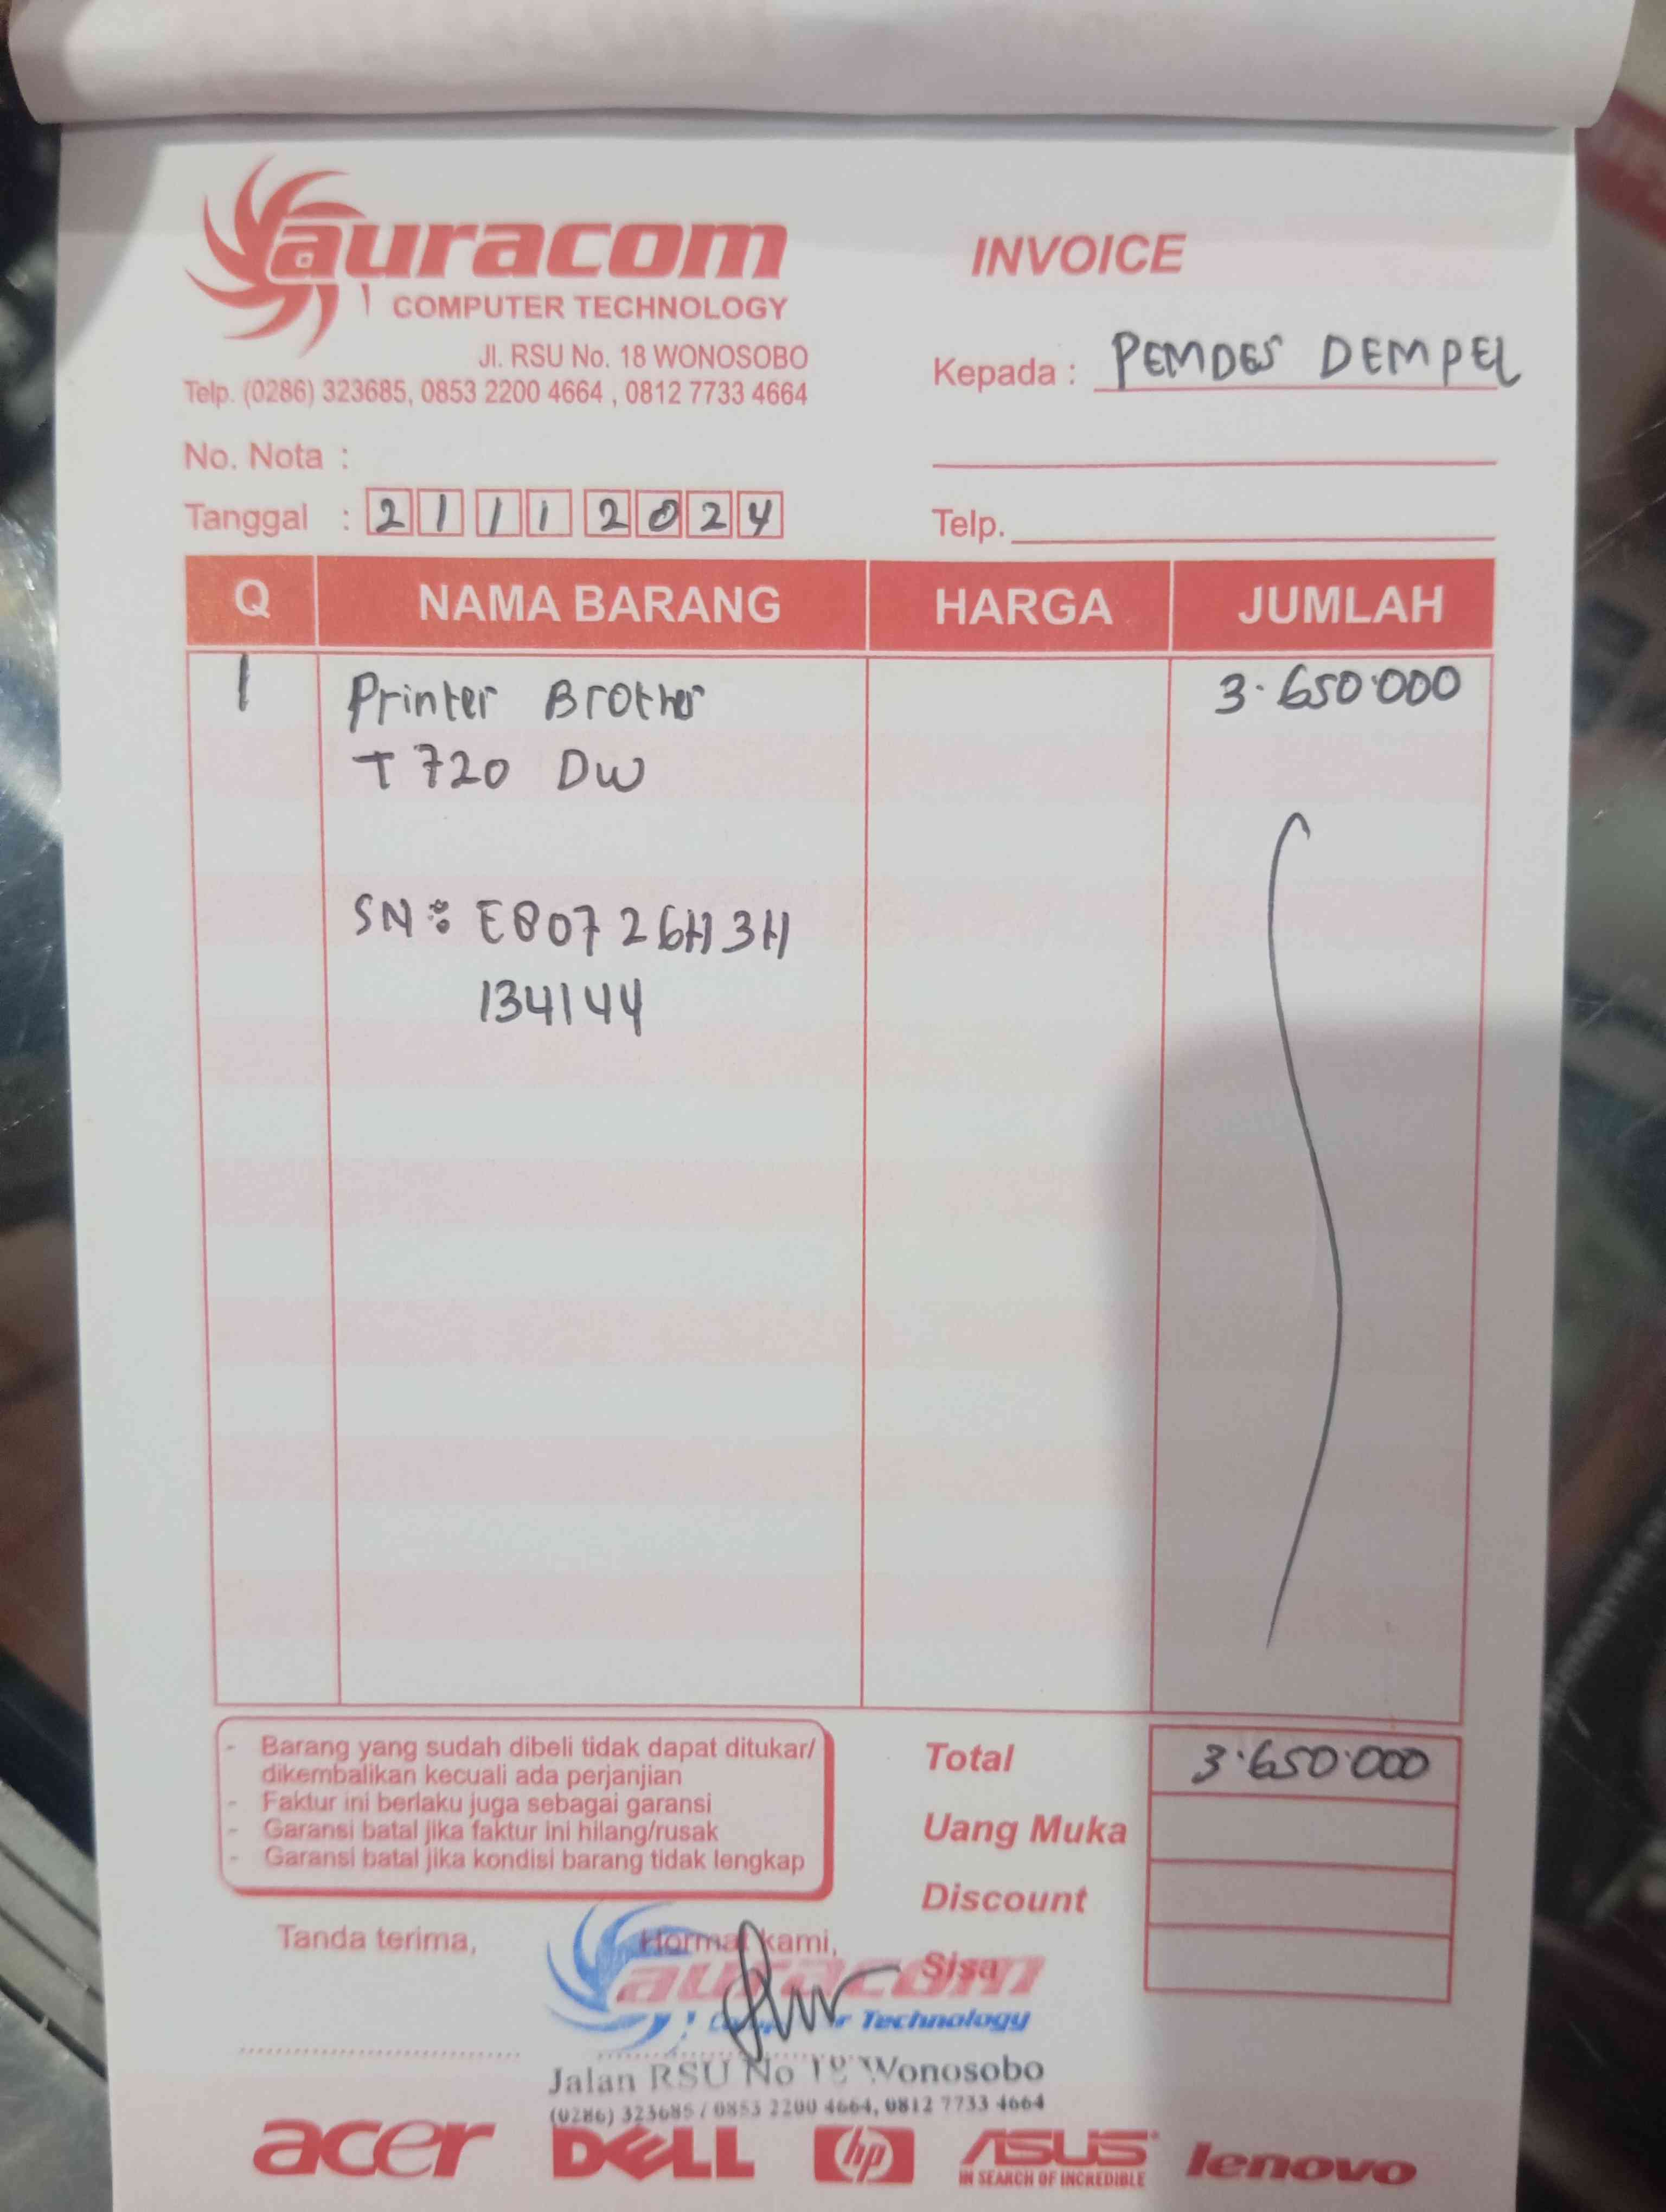 auracom
COMPUTER TECHNOLOGY
Jl. RSU No. 18 WONOSOBO
Telp. (0286) 323685, 0853 2200 4664 , 0812 7733 4664
INVOICE
Kepada : PEMDES DEMPEL
No. Nota :
Tanggal : 21 11 2024
Telp.
Q NAMA BARANG HARGA JUMLAH
1 Printer Brother 3.650.000
T720 DW
SN : E80726H3H
134144
- Barang yang sudah dibeli tidak dapat ditukar/
dikembalikan kecuali ada perjanjian
- Faktur ini berlaku juga sebagai garansi
- Garansi batal jika faktur ini hilang/rusak
- Garansi batal jika kondisi barang tidak lengkap
Total 3.650.000
Uang Muka
Discount
Sisa
Tanda terima,
Hormat kami,
auracom
Computer Technology
Jalan RSU No 18 Wonosobo
(0286) 323685 / 0853 2200 4664, 0812 7733 4664
acer DELL hp ASUS lenovo
IN SEARCH OF INCREDIBLE